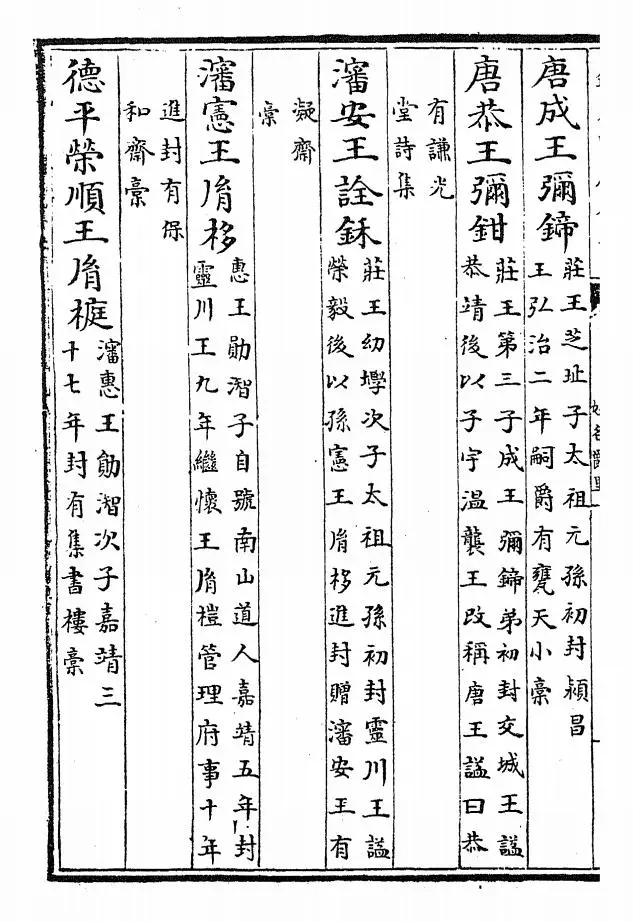 唐成王彌鍗
莊王芝址子太祖元孫初封潁昌
王弘治二年嗣爵有甕天小稾
唐恭王彌鉗
莊王第三子成王彌鍗弟初封交城王謚
恭靖後以子宇温襲王改稱唐王謚曰恭
有謙光
堂詩集
瀋安王詮鉌
莊王幼㙾次子太祖元孫初封靈川王謚
榮毅後以孫憲王胤栘進封贈瀋安王有
凝齋
稾
瀋憲王胤栘
惠王勛潪子自號南山道人嘉靖五年封
靈川王九年繼懷王胤榿管理府事十年
進封有保
和齋稾
德平榮順王胤榳
瀋惠王勛潪次子嘉靖三
十七年封有集書樓稾